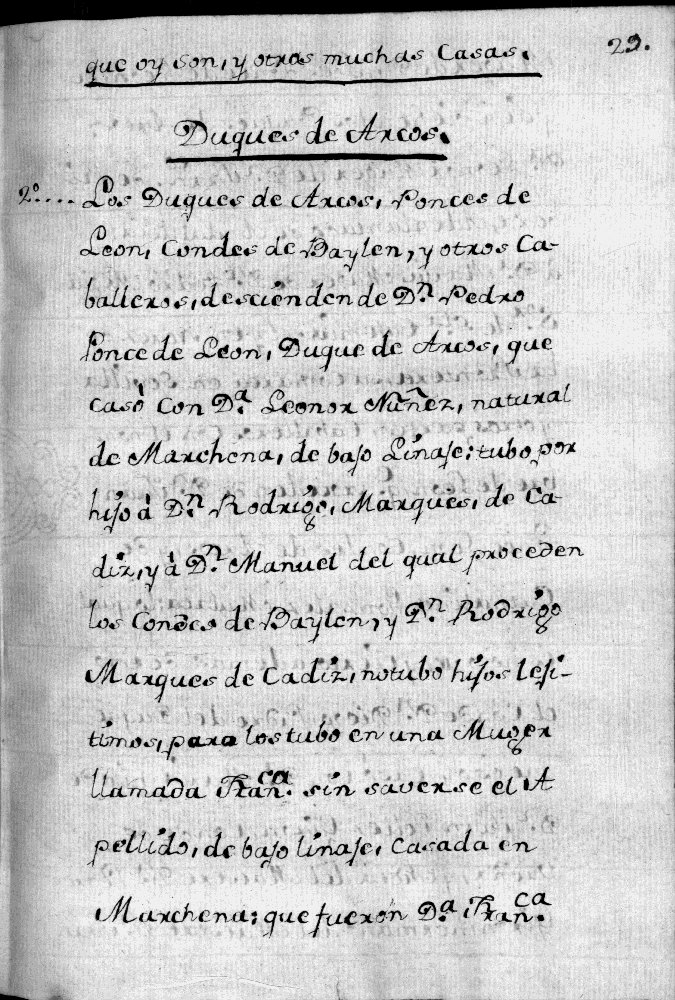 29.
que oy son, y otras muchas Casas.
Duques de Arcos.
2º.... Los Duques de Arcos, Ponces de
Leon, Condes de Baylen, y otros Ca-
balleros, descienden de Dn. Pedro
Ponce de Leon, Duque de Arcos, que
casò con Da. Leonor Nuñez, natural
de Marchena, de bajo Linaje: tubo por
hijo à Dn. Rodrigo, Marques, de Ca-
diz, y à Dn. Manuel del qual proceden
los Condes de Baylen, y Dn. Rodrigo
Marques de Cadiz, no tubo hijos leji-
timos, para los tubo en una Muger
llamada Franca. sin saverse el A
pellido, de bajo linaje, Casada en
Marchena: que fueron Da. Franca.